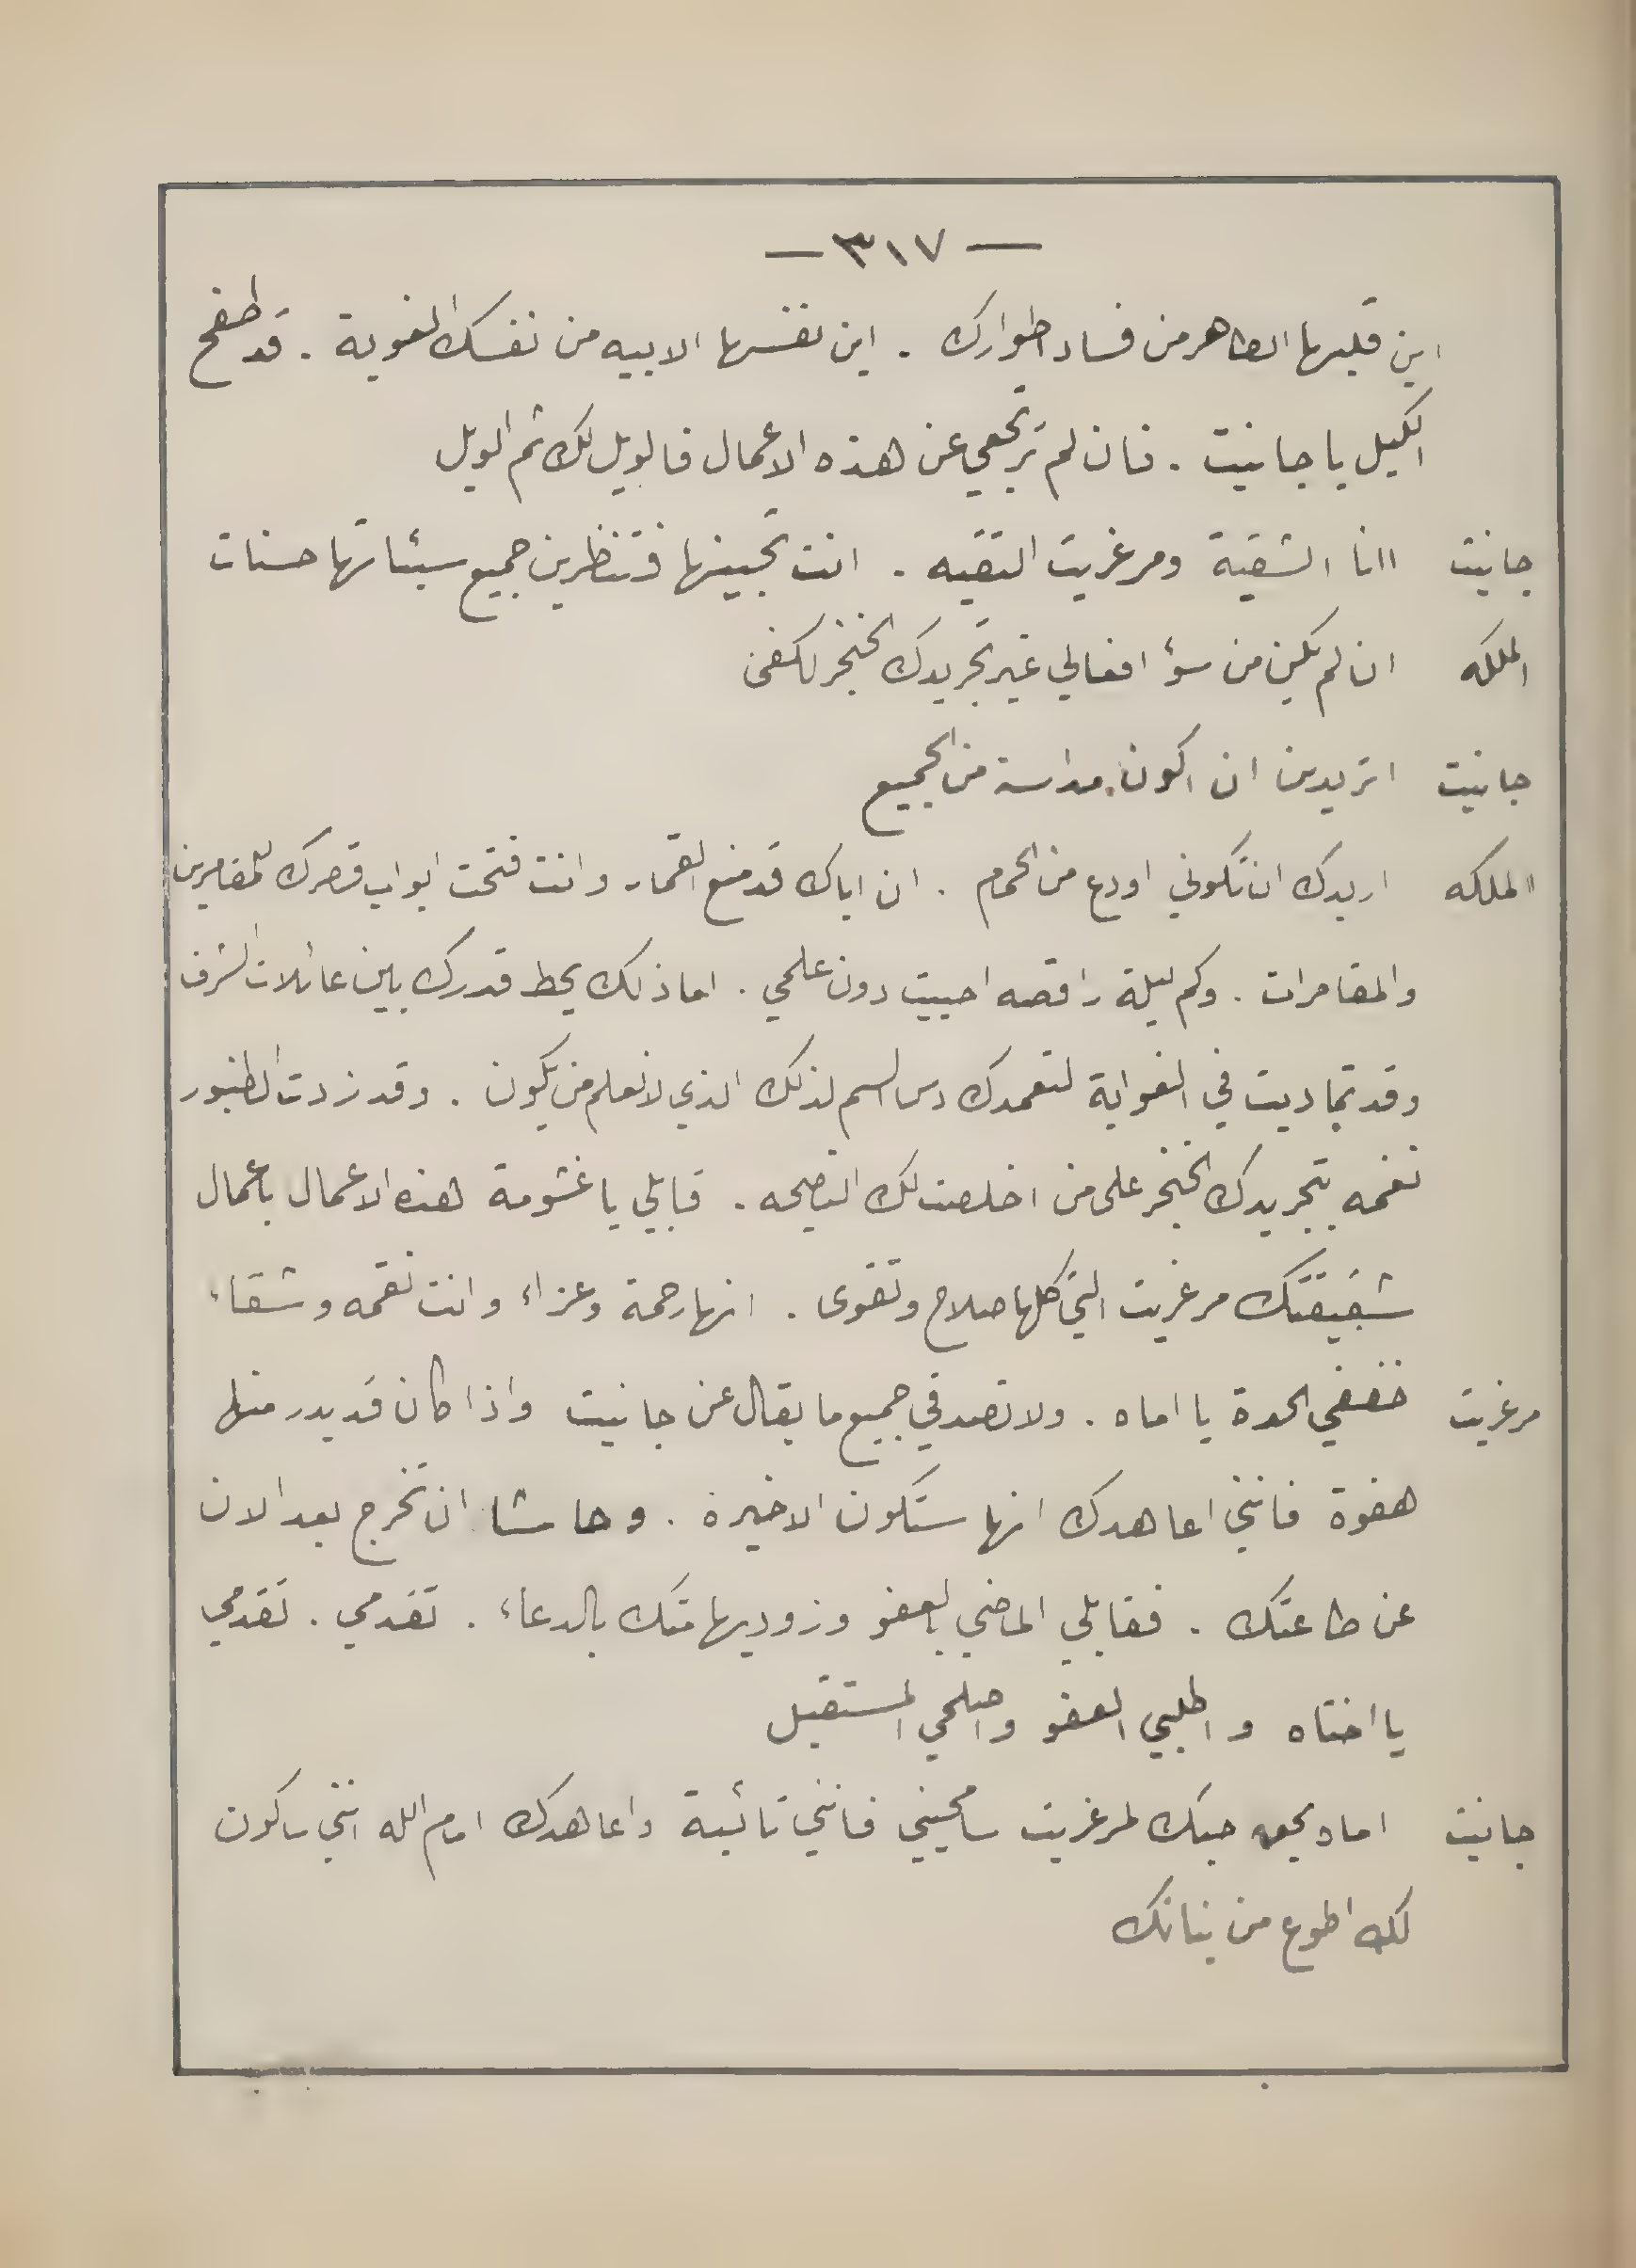 — ٣١٧ —
اين قلبها الطاهر من فساد اطوارك . اين نفسها الابيه من نفسك الغوية . قد طفح
الكيل يا جانيت . فان لم ترجعي عن هذه الاعمال فالويل لك ثم الويل
جانيت اانا الشقية ومرغريت التقيه . انت تحبينها فتنظرين جميع سيئاتها حسنات
الملكه ان لم يكن من سؤ افعالي غير تجريدك الخنجر لكفى
جانيت اتريدين ان اكون مداسة من الجميع
الملكه اريدك ان تكوني اودع من الحمام . ان اباك قد منع القمار وانت فتحت ابواب قصرك للمقامرين
والمقامرات . وكم ليلة راقصه احييت دون علمي . اما ذلك يحط قدرك بين عائلات الشرف
وقد تماديت في الغواية لتعمدك دس السم لذلك الذي لا نعلم من يكون . وقد زدت الطنبور
نغمه بتجريدك الخنجر على من اخلصت لك النصيحه . قابلي يا غشومة هذه الاعمال باعمال
شقيقتك مرغريت التي كلها صلاح وتقوى . انها رحمة وعزاء وانت نقمه وشقاء
مرغريت خففي الحدة يا اماه . ولا تصدقي جميع ما يقال عن جانيت واذا كان قد بدر منها
هفوة فانني اعاهدك انها ستكون الاخيرة . وحاشا ان تخرج بعد الان
عن طاعتك . فقابلي الماضي بالعفو وزوديها منك بالدعاء . تقدمي . تقدمي
يا اختاه واطلبي العفو واصلحي المستقبل
جانيت اماه بحق حبك لمرغريت سامحيني فانني تائبة واعاهدك امام الله انني ساكون
لك اطوع من بنانك